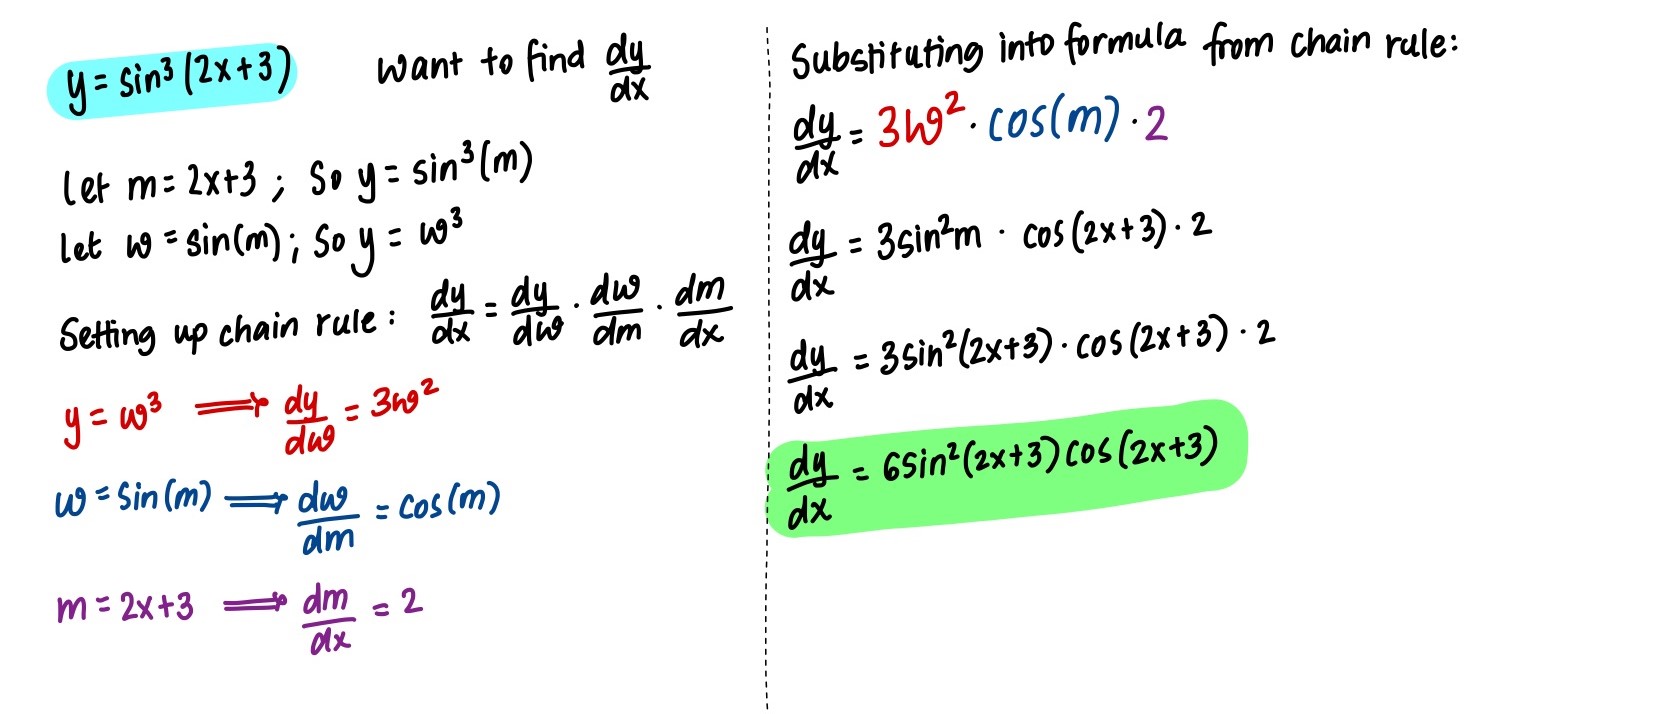 y = sin³(2x+3) want to find dy/dx
let m = 2x+3 ; So y = sin³(m)
let w = sin(m) ; So y = w³
Setting up chain rule : dy/dx = dy/dw · dw/dm · dm/dx
y = w³ ⟹ dy/dw = 3w²
w = sin(m) ⟹ dw/dm = cos(m)
m = 2x+3 ⟹ dm/dx = 2
Substituting into formula from chain rule:
dy/dx = 3w² · cos(m) · 2
dy/dx = 3sin²m · cos(2x+3) · 2
dy/dx = 3sin²(2x+3) · cos(2x+3) · 2
dy/dx = 6sin²(2x+3)cos(2x+3)